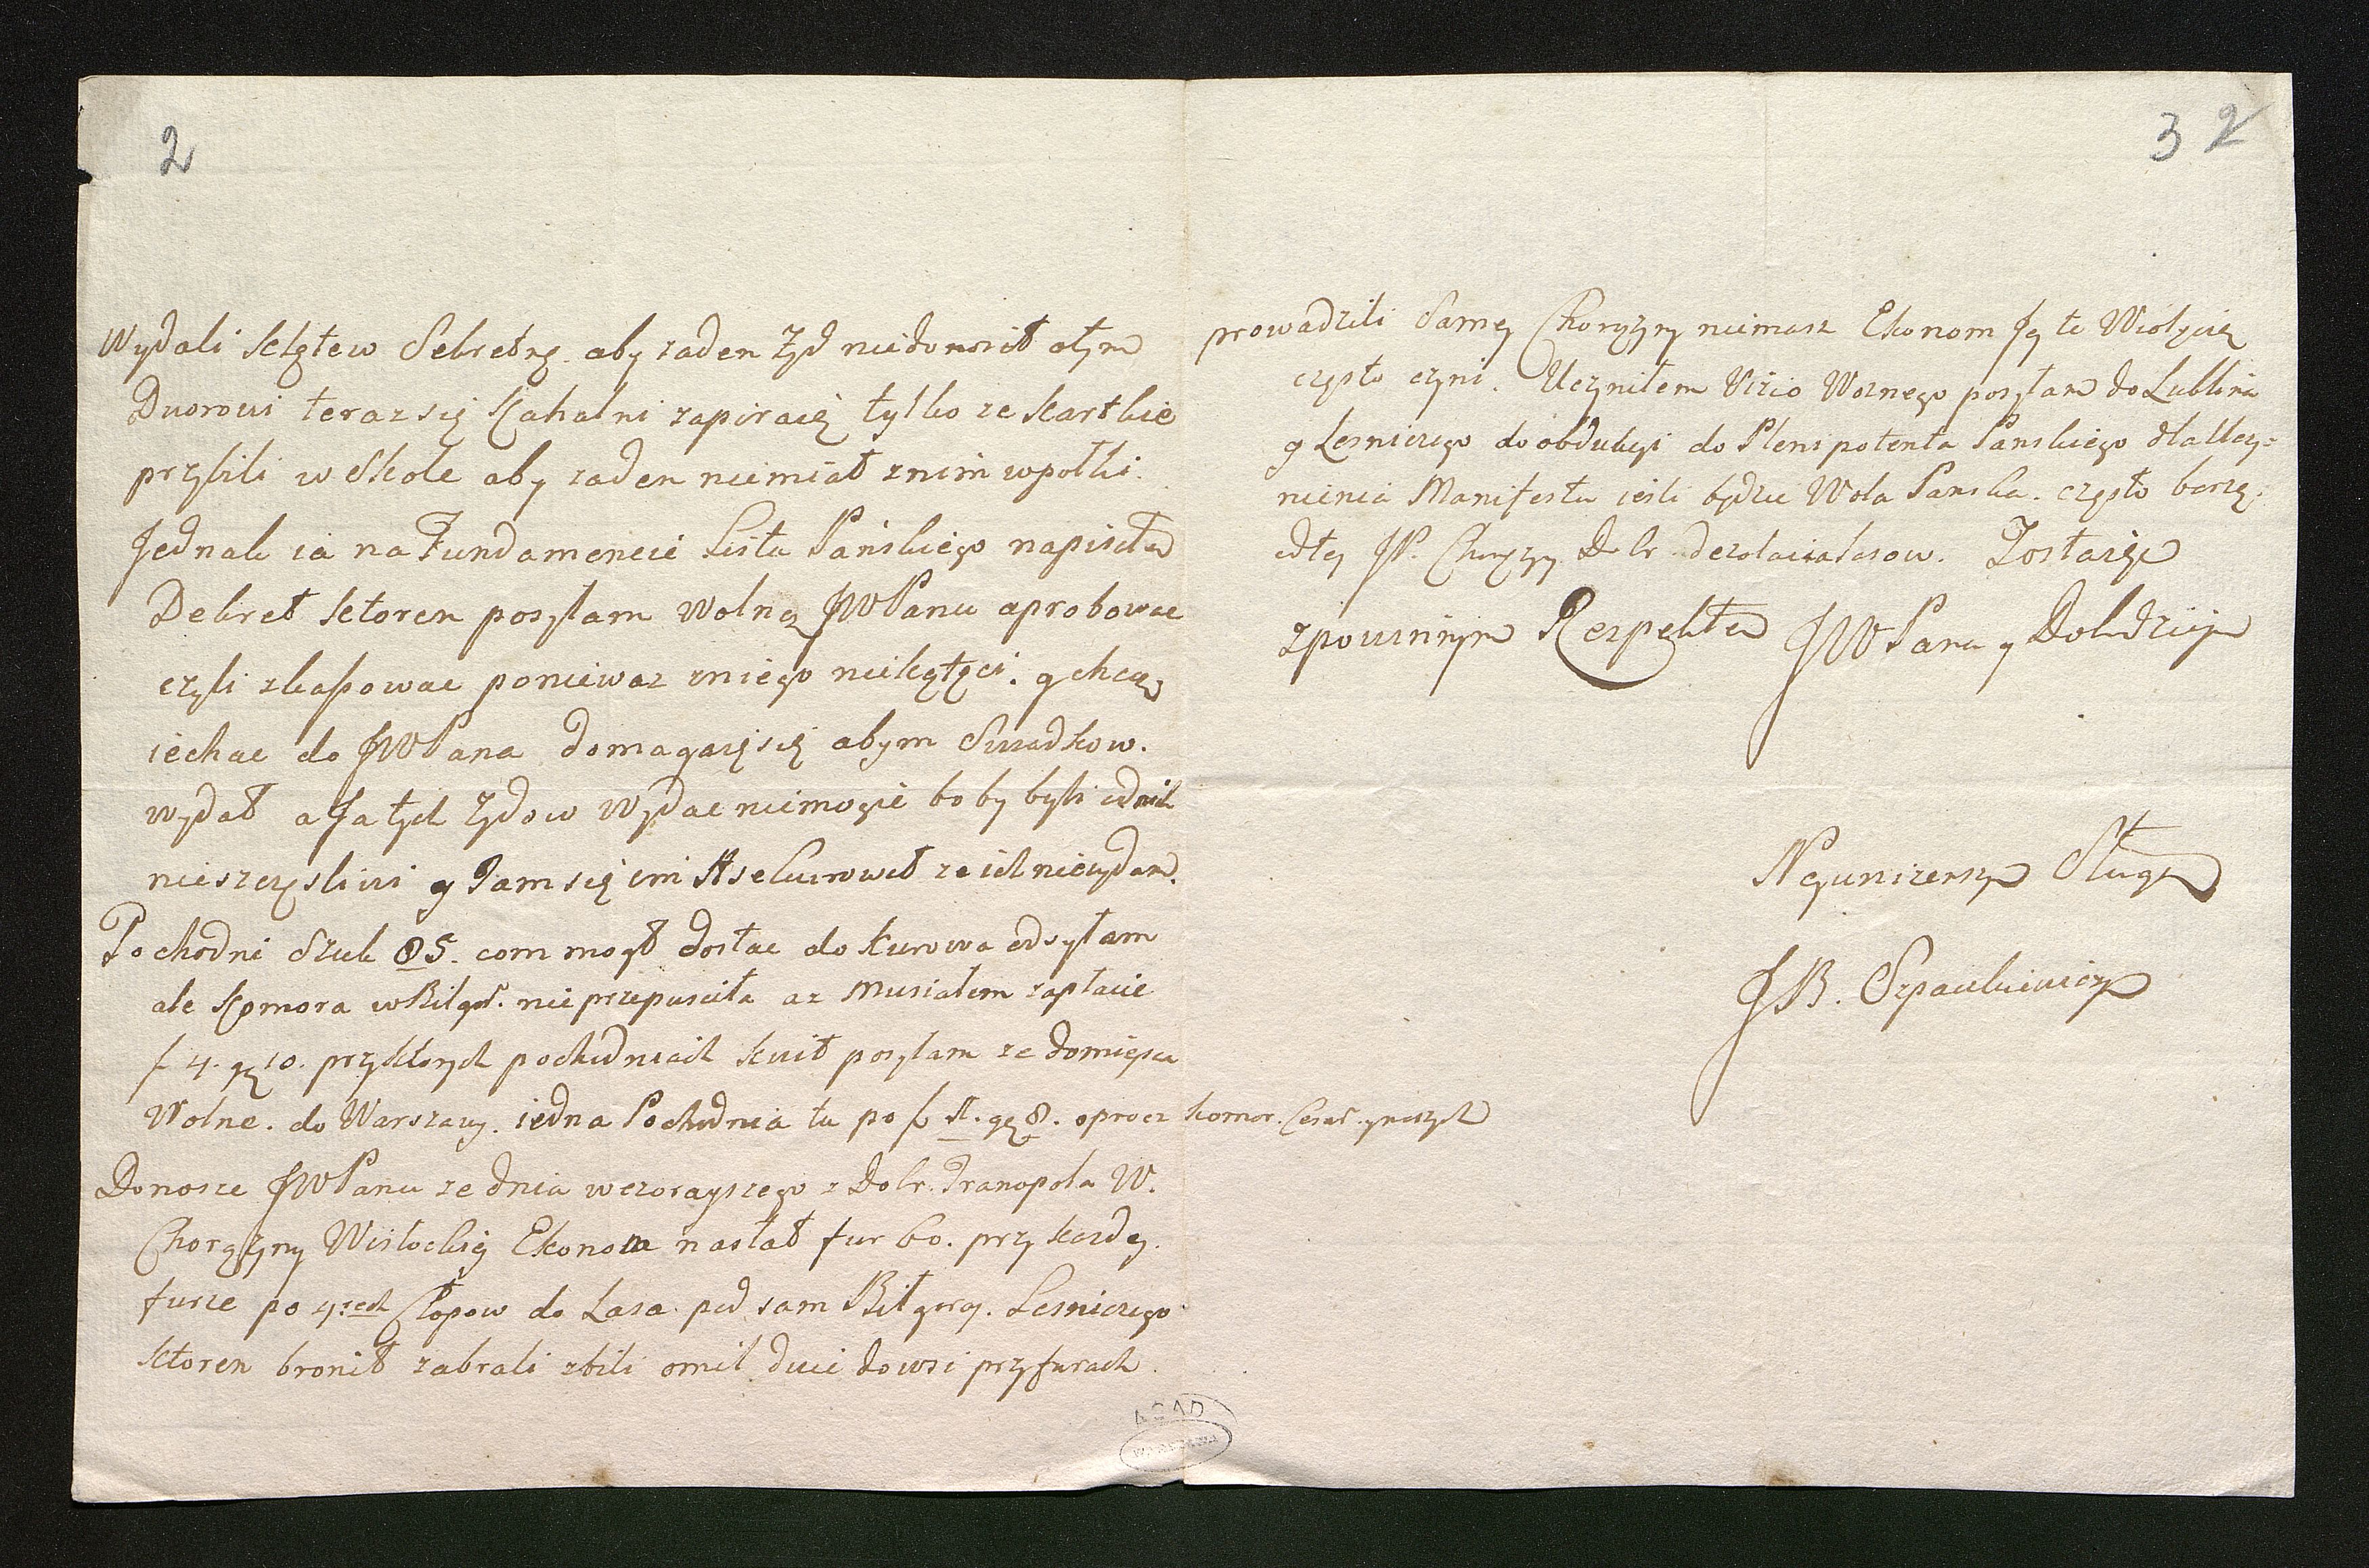 2
Wydali Klątew Sekretną aby zaden Zyd niedonosił otym
Dworowi teraz się Kahalni zapiraią tylko ze Kartkie
przybili w Skole aby zaden niemiał znim wpołki.
Jednak ia na Fundamencie Listu Pańskiego napisałem
Dekret ktoren posyłam Wolno JWPanu aprobowac
czyli skasować poniewaz zniego niekątęci. y chcą
iechac do JWPana domagaią się abym Swiadkow.
wydał a Ja tych Zydow Wydac niemogie bo by byli od nich
nieszczęsliwi y Jam się im Asekurował ze ich niewydam.
Pochodni Sztuk 85. com mogł dostac do Kurowa odsyłam
ale Komora w Biłgor. nie przepusciła az Musiałem zapłacic
f 4. gr 10. przyktorych pochodniach kwit posyłam ze do mieysca
Wolne. do Warszawy. iedna Pochodnia tu po f 1. gr 8. oprocz komor. Cesar. ynaszych
Donosze JWPanu ze dnia wczorayszego z Dobr. Franopola W.
Chorązyny Wisłockiey Ekonom nasłał fur 60. przy kazdey.
furze po 4rech Chłopow do Lasa pod sam Biłgoray. Lesniczego
ktoren bronił zabrali zbili omil dwie do wsi przy furach
3 2
prowadzili Samey Chorązyny niemasz Ekonom Jey te Wiolęcią
często czyni. Uczyniłem Vizio Woznego posyłam do Lublina
y Lesniczego do obdukcyi do Plenipotenta Pańskiego dla Uczy=
nienia Manifestu iesli będzie Wola Pańska. często
od tey JP. Chorązyny Dobr dezolacia lasow. Zostaięc
zpowinnym Respektem JWPana y Dobrdzieja
Nayunizenszym Sługą
JB. Szpaukiewicz
AGAD
WARSZAWA